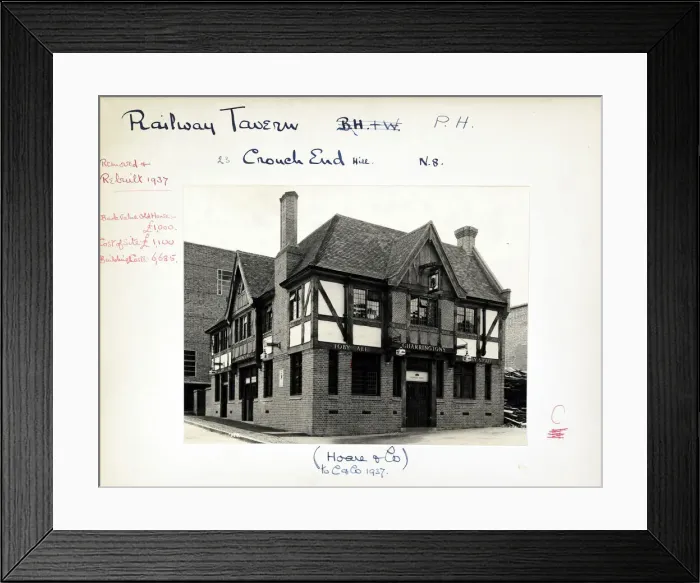 Railway Tavern B.H.+W. P.H.
23 Crouch End Hill. N.8.
Removed &
Rebuilt 1937
Book Value Old House
£1,000.
Cost of site £1,100
Building Cost 6,685.
TOBY ALE CHARRINGTONS
(Hoare & Co)
to C&Co 1937.
C